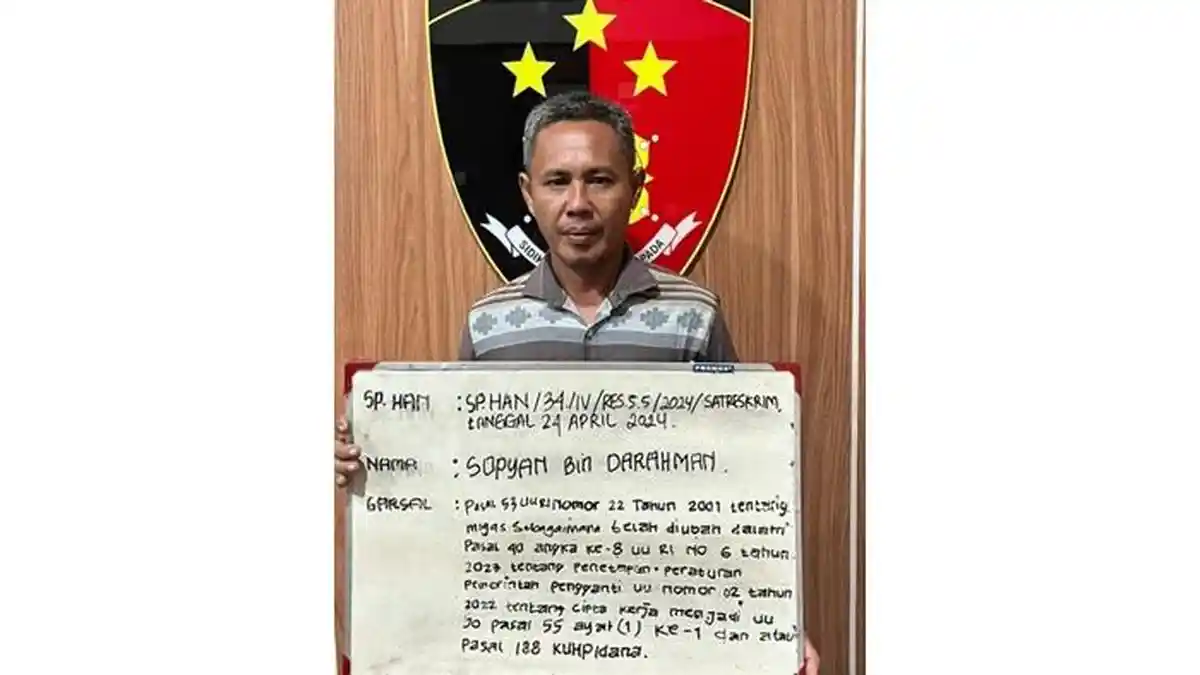 SIDIK
PADA
SP. HAN : SP.HAN/34/IV/RES.5.5/2024/SATRESKRIM,
TANGGAL 24 APRIL 2024.
NAMA : SOPYAN Bin DARAHMAN.
GARSAL : Pasal 53 UU RI nomor 22 Tahun 2001 tentang
migas Sebagaimana telah diubah dalam
Pasal 40 angka ke-8 UU RI NO 6 tahun
2023 tentang penetapan peraturan
Pemerintah pengganti UU nomor 02 tahun
2022 tentang cipta kerja menjadi UU
Jo pasal 55 ayat (1) KE-1 dan atau
Pasal 188 KUHPidana.